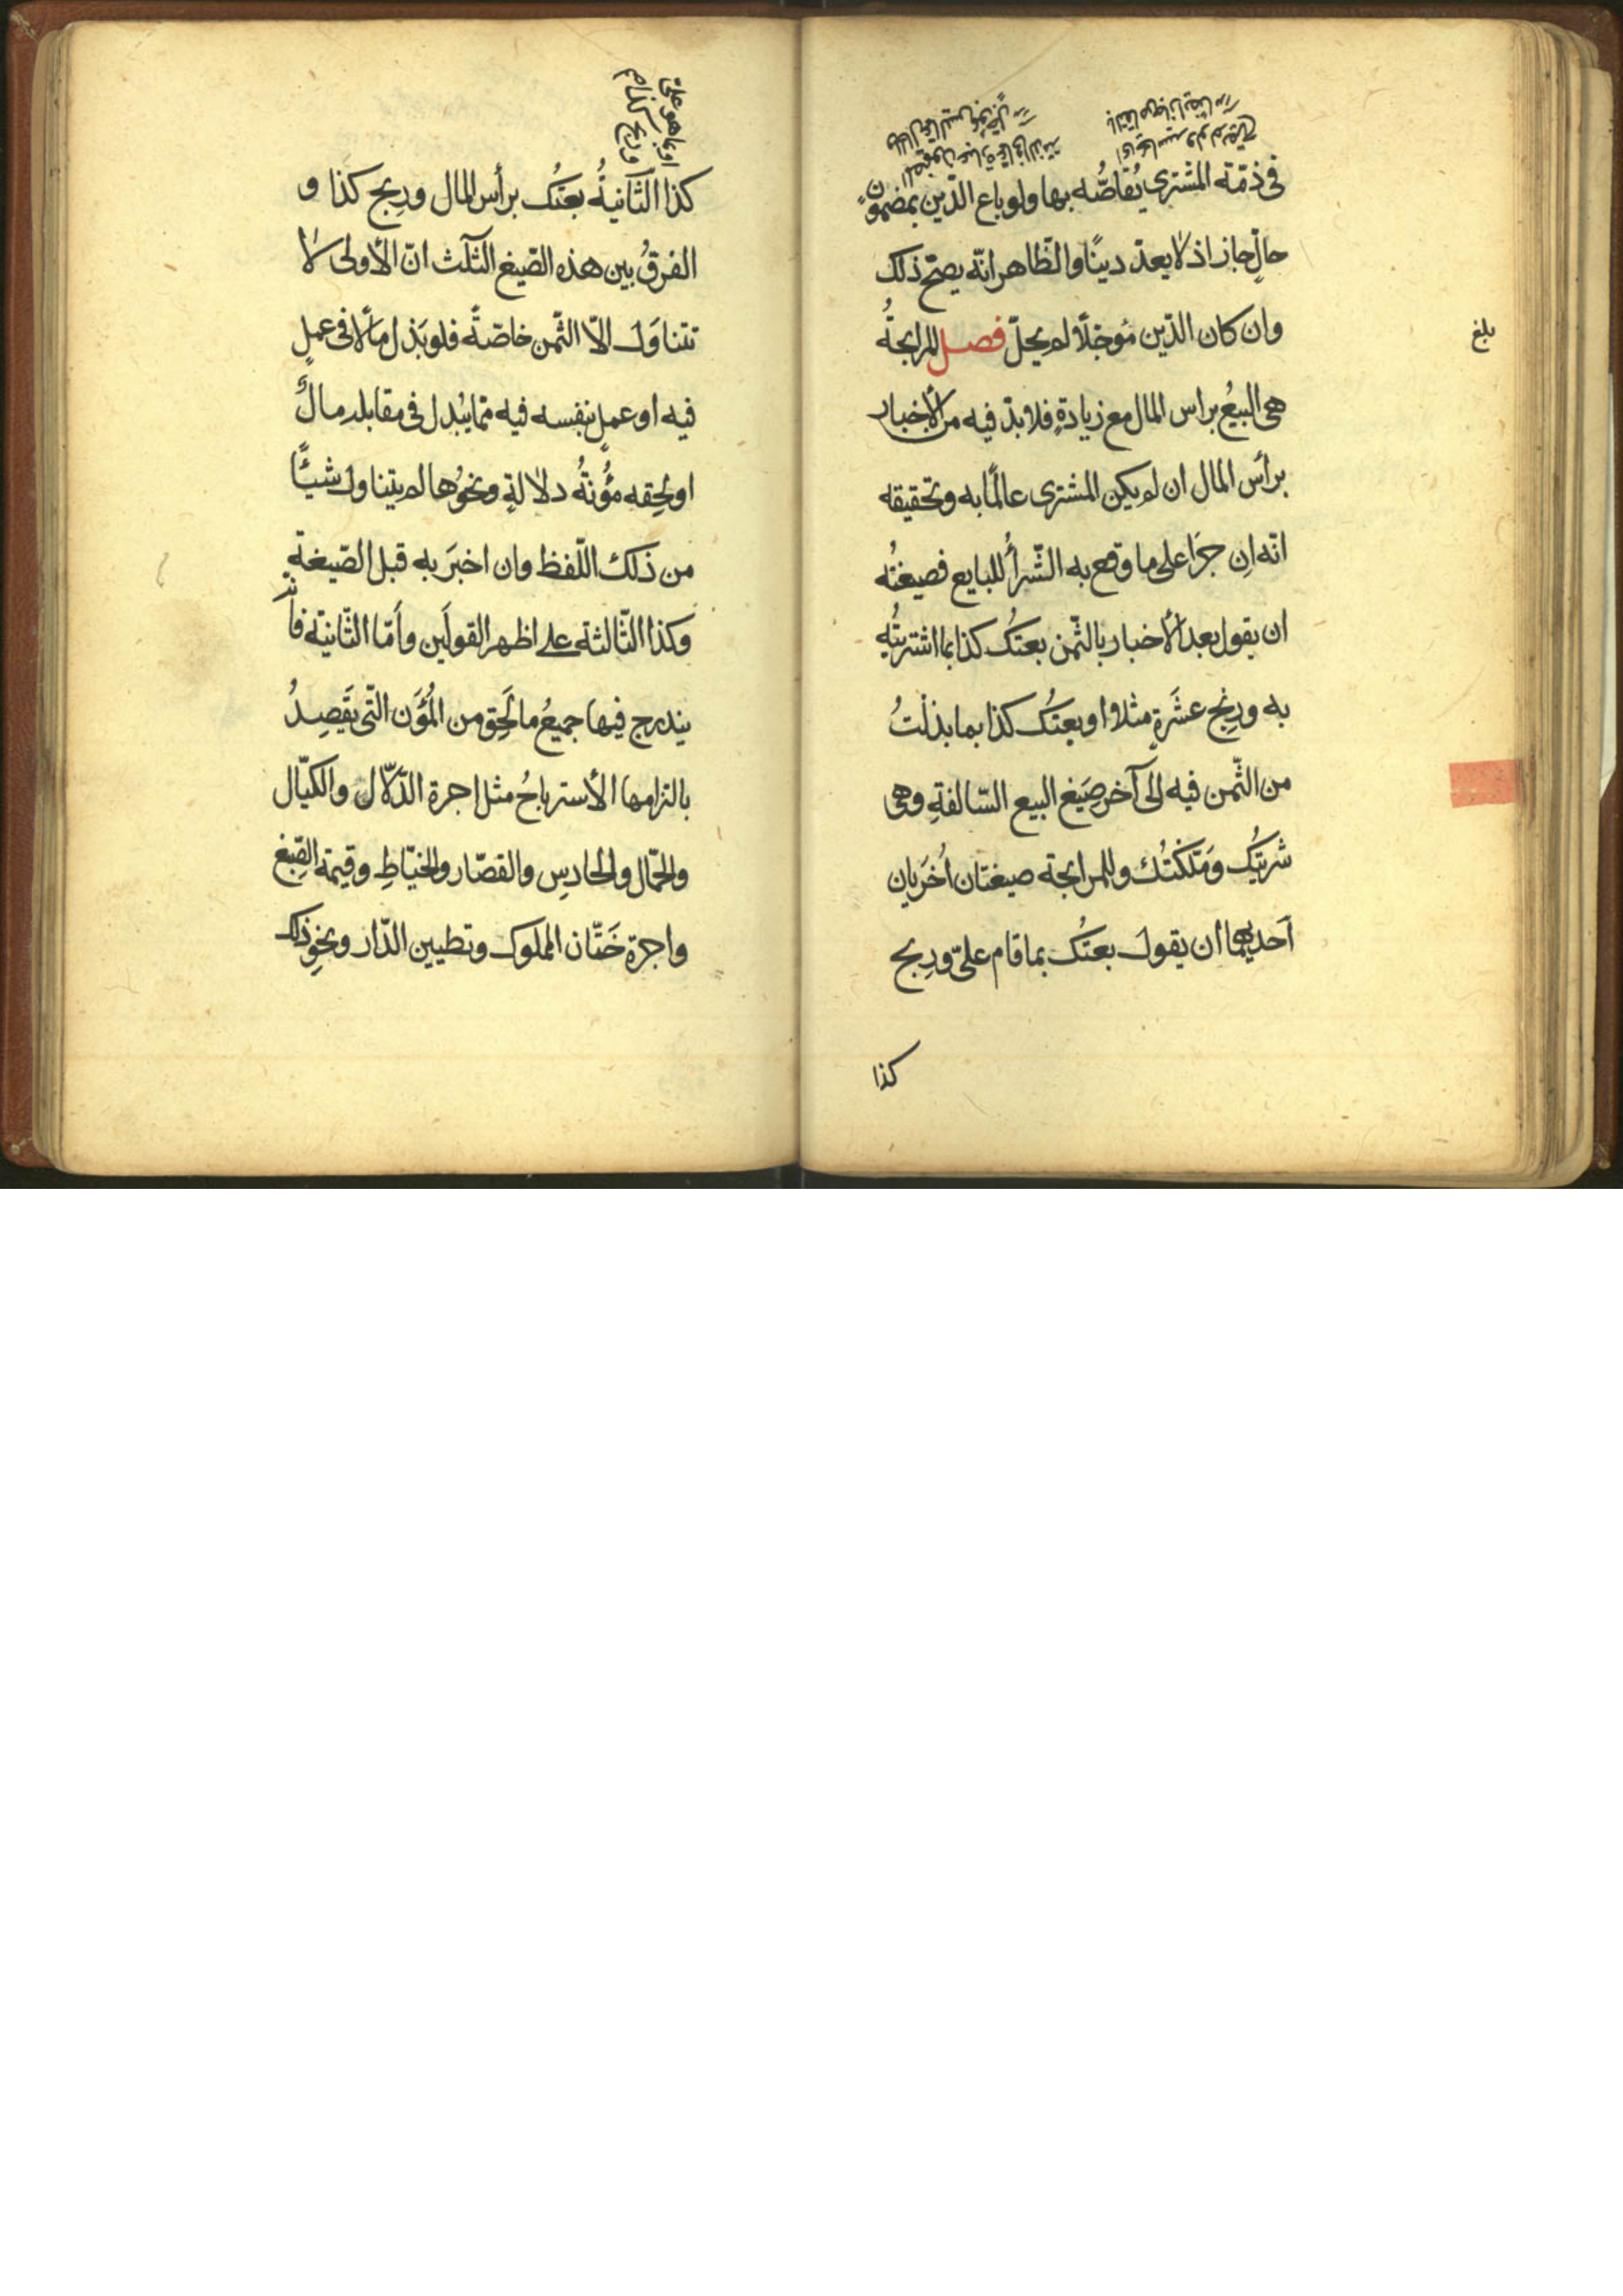 فى ذمّة المشترى يُقاصُّه بها ولو باع الدّين بمضمونٍ
حالٍّ جاز اذ لا يعدّ دينًا والظّاهر انّه يصحّ ذلك
وان كان الدّين مُوجّلًا لم يحلّ فصل المرابحةُ
هى البيعُ براس المال مع زيادةٍ فلا بدّ فيه من الأخبار
برأس المال ان لم يكن المشترى عالمًا به وتحقيقه
انّه اِن جرَا على ما وقع به الشّرأُ للبايع فصيغتُه
ان يقول بعد الأخبار بالثّمن بعتُك كذا بما اشتريتُه
به ورِبْحِ عشَرةٍ مثلا او بعتُك كذا بما بذلْتُ
من الثّمن فيه الى آخر صِيَغ البيع السّالفةِ وهى
شريتُك ومَلّكتُك وللمرابحة صيغتان اُخرَيان
اَحديهما ان يقول بعتُك بما قام علىّ ورِبح
كذا
بلغ
او بما هو علىّ
وربح كذا م
كذا الثّانيةُ بعتُك برأس المال ورِبح كذا و
الفرقُ بين هذه الصّيغ الثّلٰث انّ الأولى لا
تتناوَل الّا الثّمن خاصّةً فلو بَذل مالًا فى عملٍ
فيه او عملٍ بنفسه فيه ممّا يُبذل فى مقابله مالٌ
او لحِقه مؤُنةُ دلالةٍ ونحوُها لم يتناول شيئًا
من ذلك اللّفظ وان اخبَر به قبل الصّيغةِ
وكذا الثّالثة على اظهر القولَين وأمّا الثّانية فانّه
يندرج فيها جميعُ ما لَحِق من المُؤَن الّتى يَقصِدُ
بالتزامها الأسترباحُ مثل اجرة الدّلّال والكيّال
والحمّال والحارِس والقصّار والخيّاطِ وقيمة الصِّبغ
واجرة خَتّان المملوك وتطيين الدّار ونحوِ ذلك